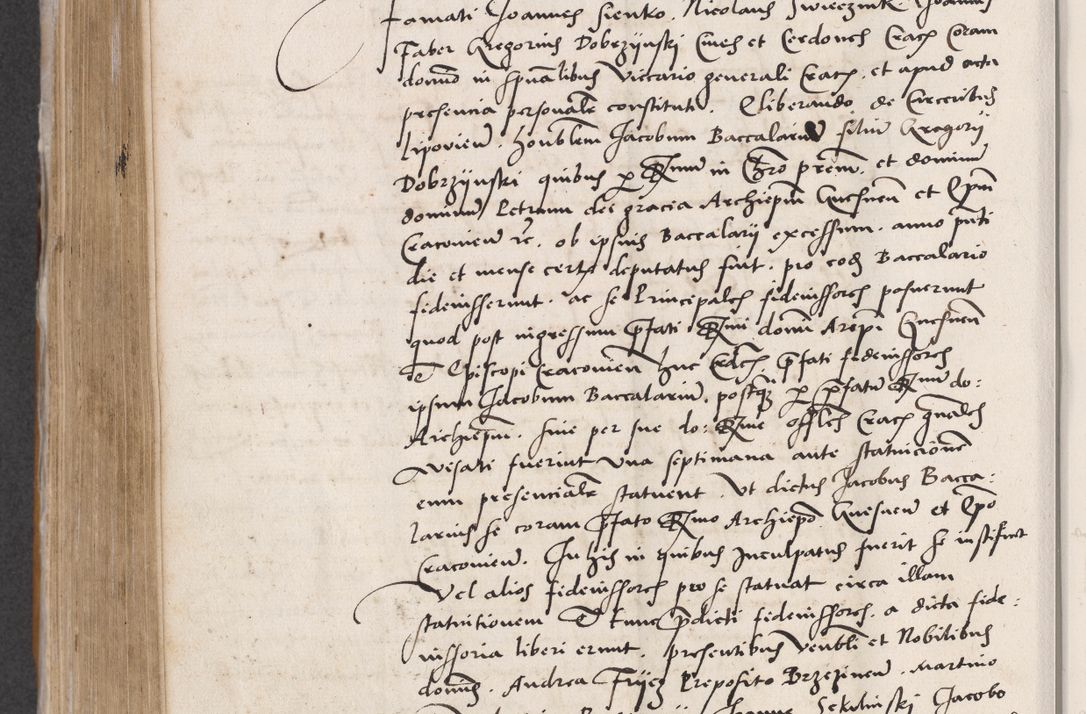 famati Joannes Sienko, Nicolaus
Faber Gregorius Dobrzijnski Cives et Cerdones Crac coram
domno in spualibus Viccario generali Crac, et apud acta
presencia personalr constituti, Eliberando de Carceribus
Lipovien, honblem Jacobum Baccalarium filium Gregorij
Dobrzijnski quibus p Rmum in Chro prem, et dominum
dominum Petrum dei gracia Archiepum Gnesnen et Epum
Cracovien etc, ob ipsius Baccalarij excessum, anno pnti
die et mense certo deputatus fuit, pro eode Baccalario
fideiusserunt, ac se Principales fideiussores posuerunt
quod post ingressum pfati Rmi domi Arepi Gnesnen
et Episcopi Cracovien huc Crac, pfati fideiussores
ipsum Jacobum Baccalarium, postq p pfatum Rmum do:
Archiepum, sive per sue do: Rme offles Crac gnales
vesati fuerint una septimana ante statuicione
eum presencialr statuent, Ut dictus Jacobus Bacca:
larius se coram pfato Rmo Archiepo Gnesnen et Epo
Cracovien, In his in quibus Inculpatus fuerit se iustificet
Vel alios fideiussores pro se statuat circa illam
statuitionem Et tunc pdicti fideiussores, a dicta fide:
iussoria liberi erunt, presentibus Venbli et Nobilibus
domis, Andrea Preposito Brzezinen, Martino
Sekulinski Jacobo